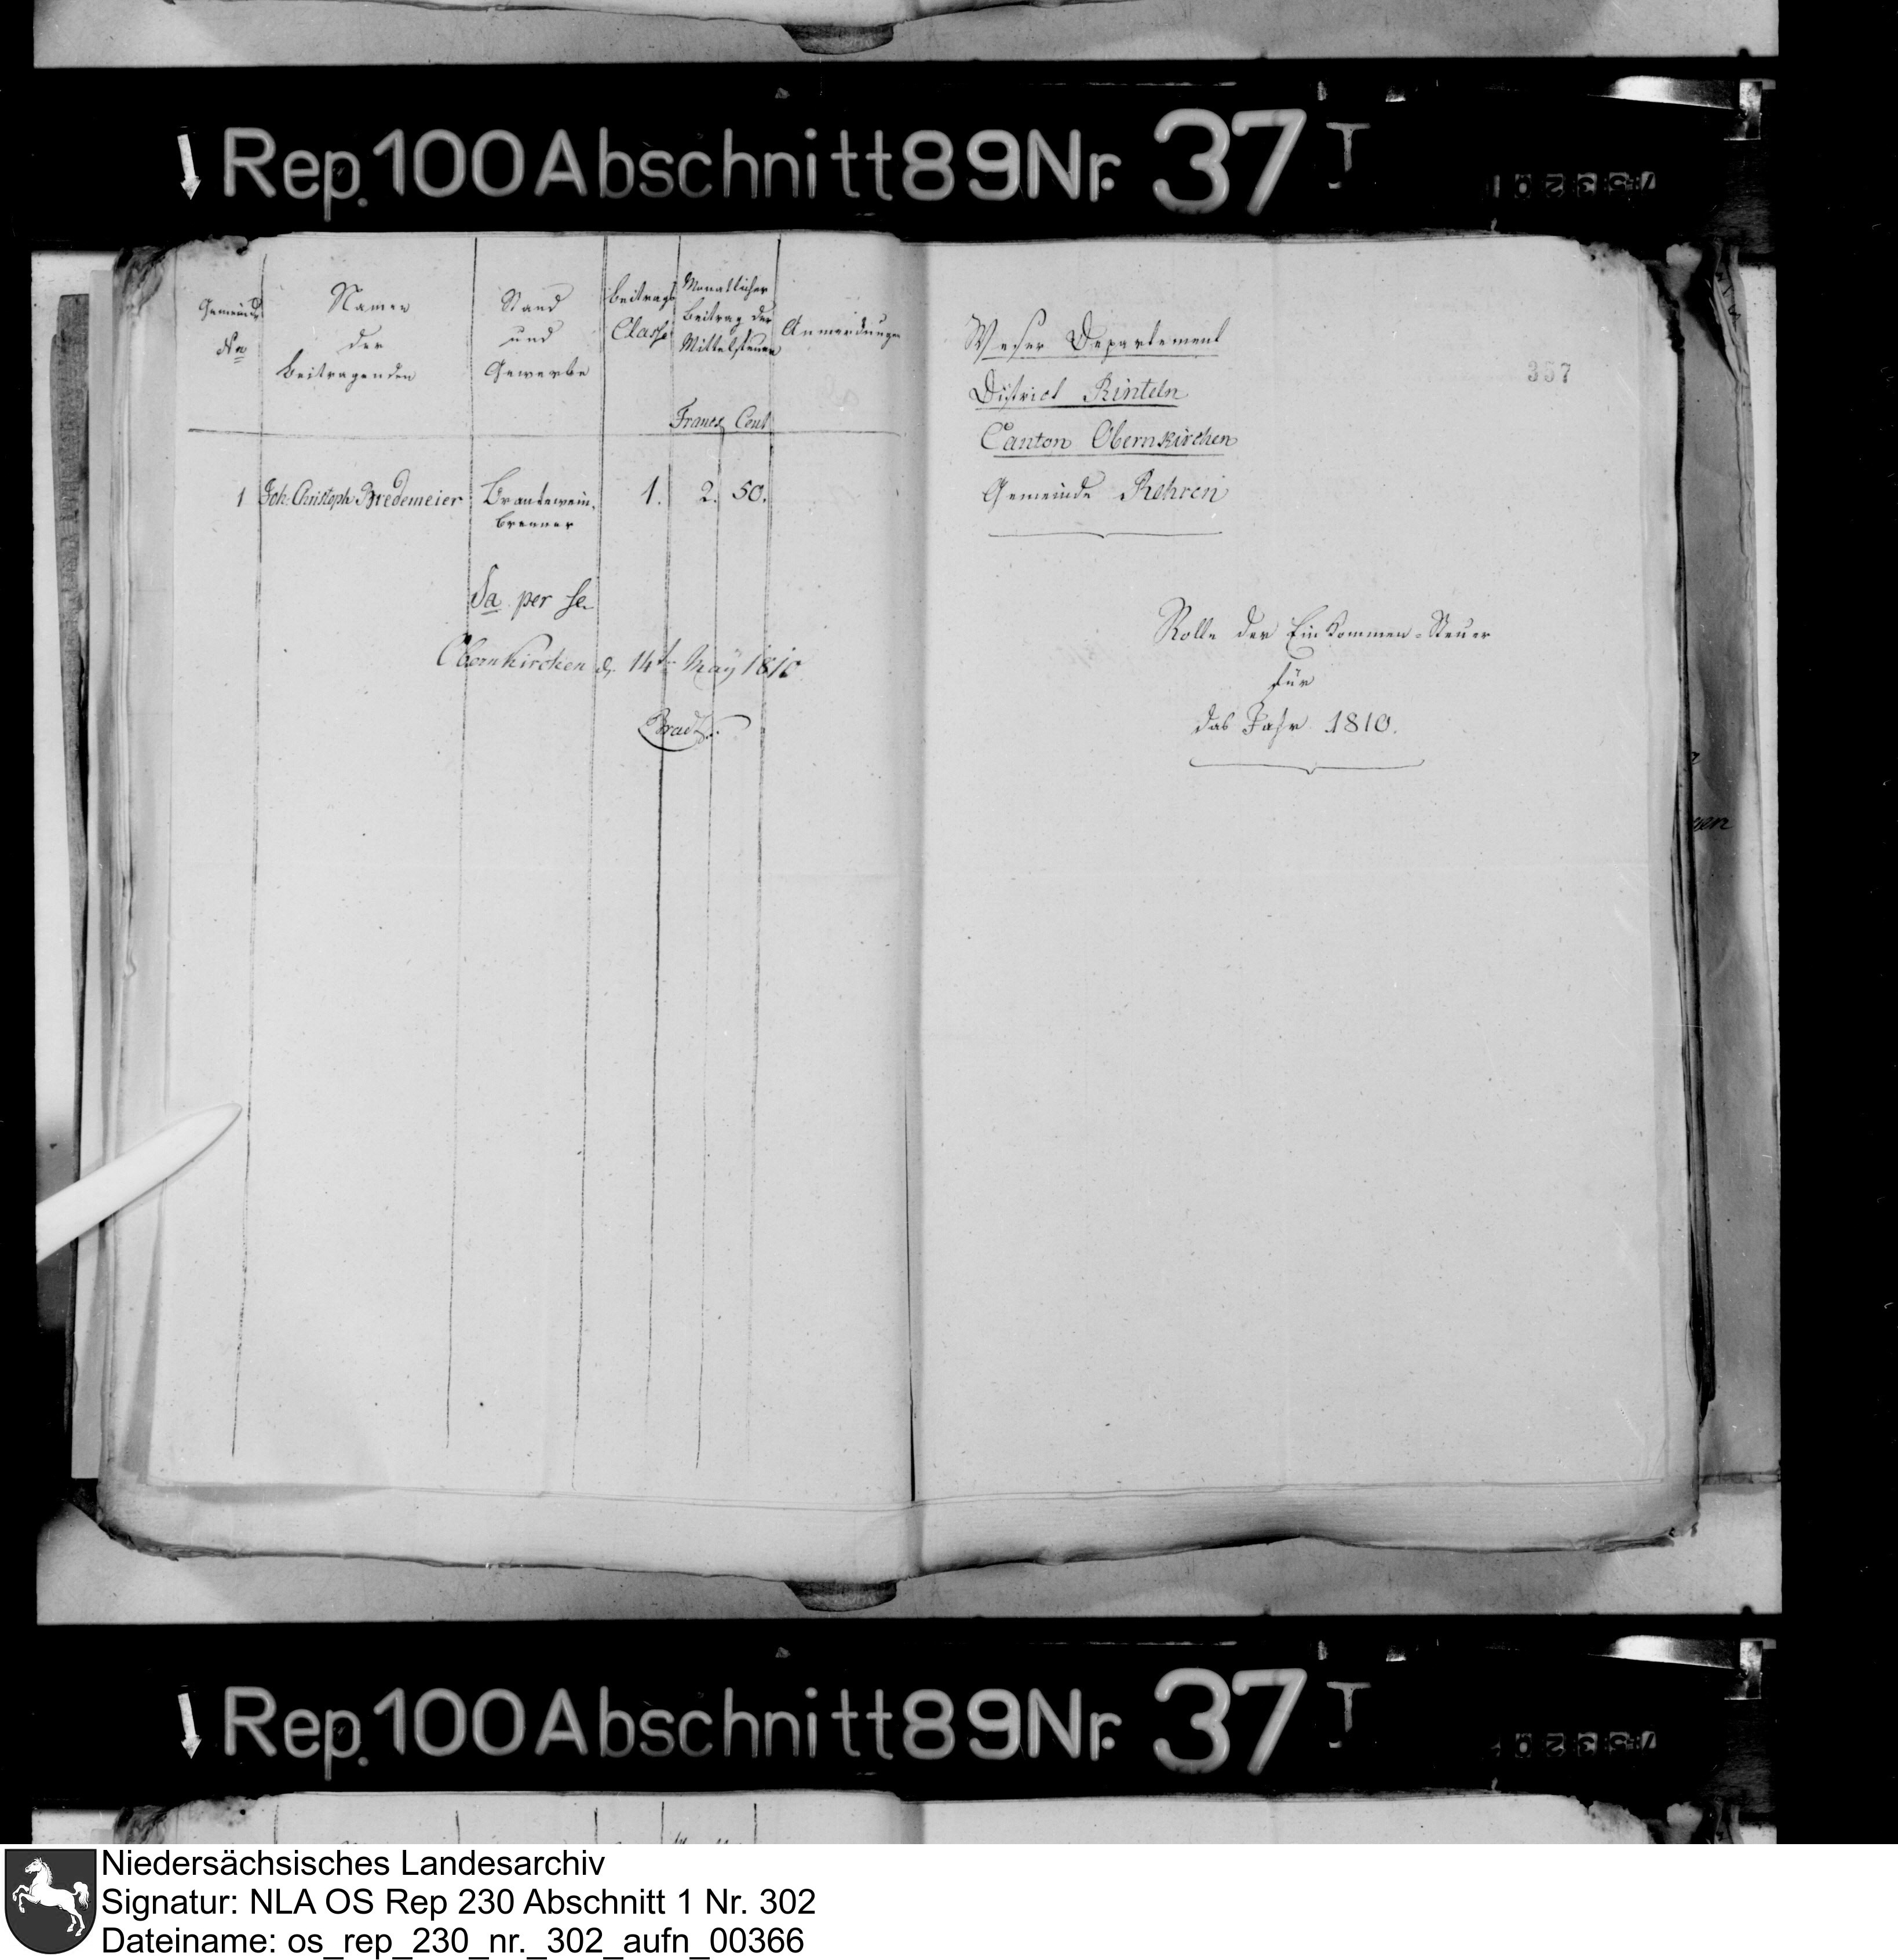 Rep. 100 Abschnitt 89 Nr. 37 I
Gemeinde
No
Namen
der
Beitragenden
Stand
und
Gewerbe
Beitrags
Classe
Monatlicher
Beitrag der
Mittelsteuer
Francs Cent
Anmerkungen
1 Joh. Christoph Bredemeier Brantewein- 1. 2. 50.
brenner
Sa. per se
Obernkirchen d. 14t May 1810
Weser Departement
337
District Rinteln
Canton Obernkirchen
Gemeinde Rehren
Rolle der Einkommen-Steuer
für
das Jahr 1810.
Rep. 100 Abschnitt 89 Nr. 37 I
Niedersächsisches Landesarchiv
Signatur: NLA OS Rep 230 Abschnitt 1 Nr. 302
Dateiname: os_rep_230_nr._302_aufn_00366